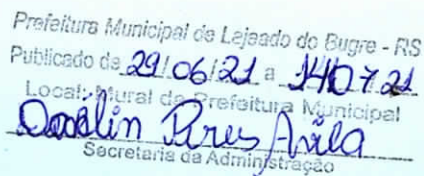 Prefeitura Municipal de Lajeado do Bugre - RS
Publicado de 29/06/21 a 14/07/21
Local: Mural da Prefeitura Municipal
Pires Ávila
Secretaria da Administração